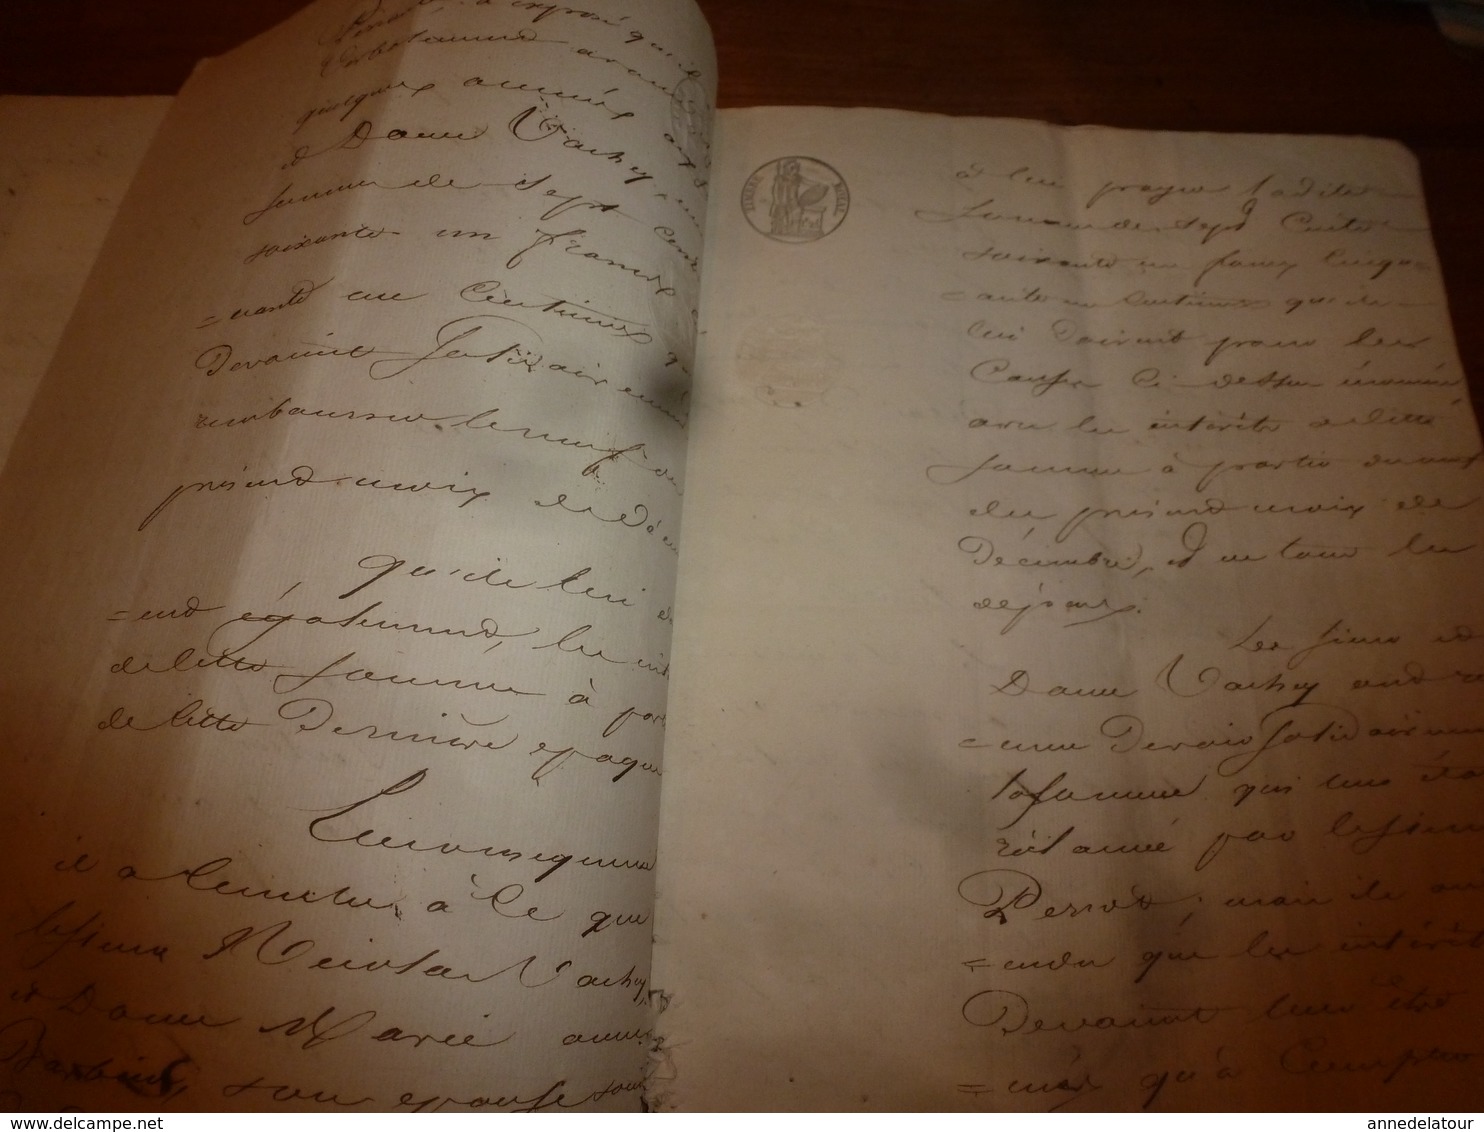 a exposé qu'il
verbalement
quelques années aux S
et Dame Vachey, une
somme de Sept cent
soixante un francs
=uante un Centimes q
Devaient Solidairement
rembourser le neuf du
présent mois de Déc
qu'ils lui d
=ent également, les int
de cette somme à par
de cette Dernière epoque
En conséquence
il a conclu à ce que
le sieur Nicolas Vachey,
et Dame Marie anne
son epouse
TIMBRE ROYAL
à lui payer ladite
Somme de Sept Cents
soixante un francs Cinqu
=ante un Centimes qu'ils
lui Doivent pour les
Causes Ci-dessus énoncées
avec les intérêts de cette
somme à partir du neuf
du présent mois de
Décembre, et en tous les
dépens.
Les sieur et
Dame Vachey ont re
=connu Devoir Solidairement
la somme qui leur éta
réclamée par le sieur
Perrot, mais ils ont
=endu que les intérêts
Devaient leur être
=nés qu'à Compter
annedelatour